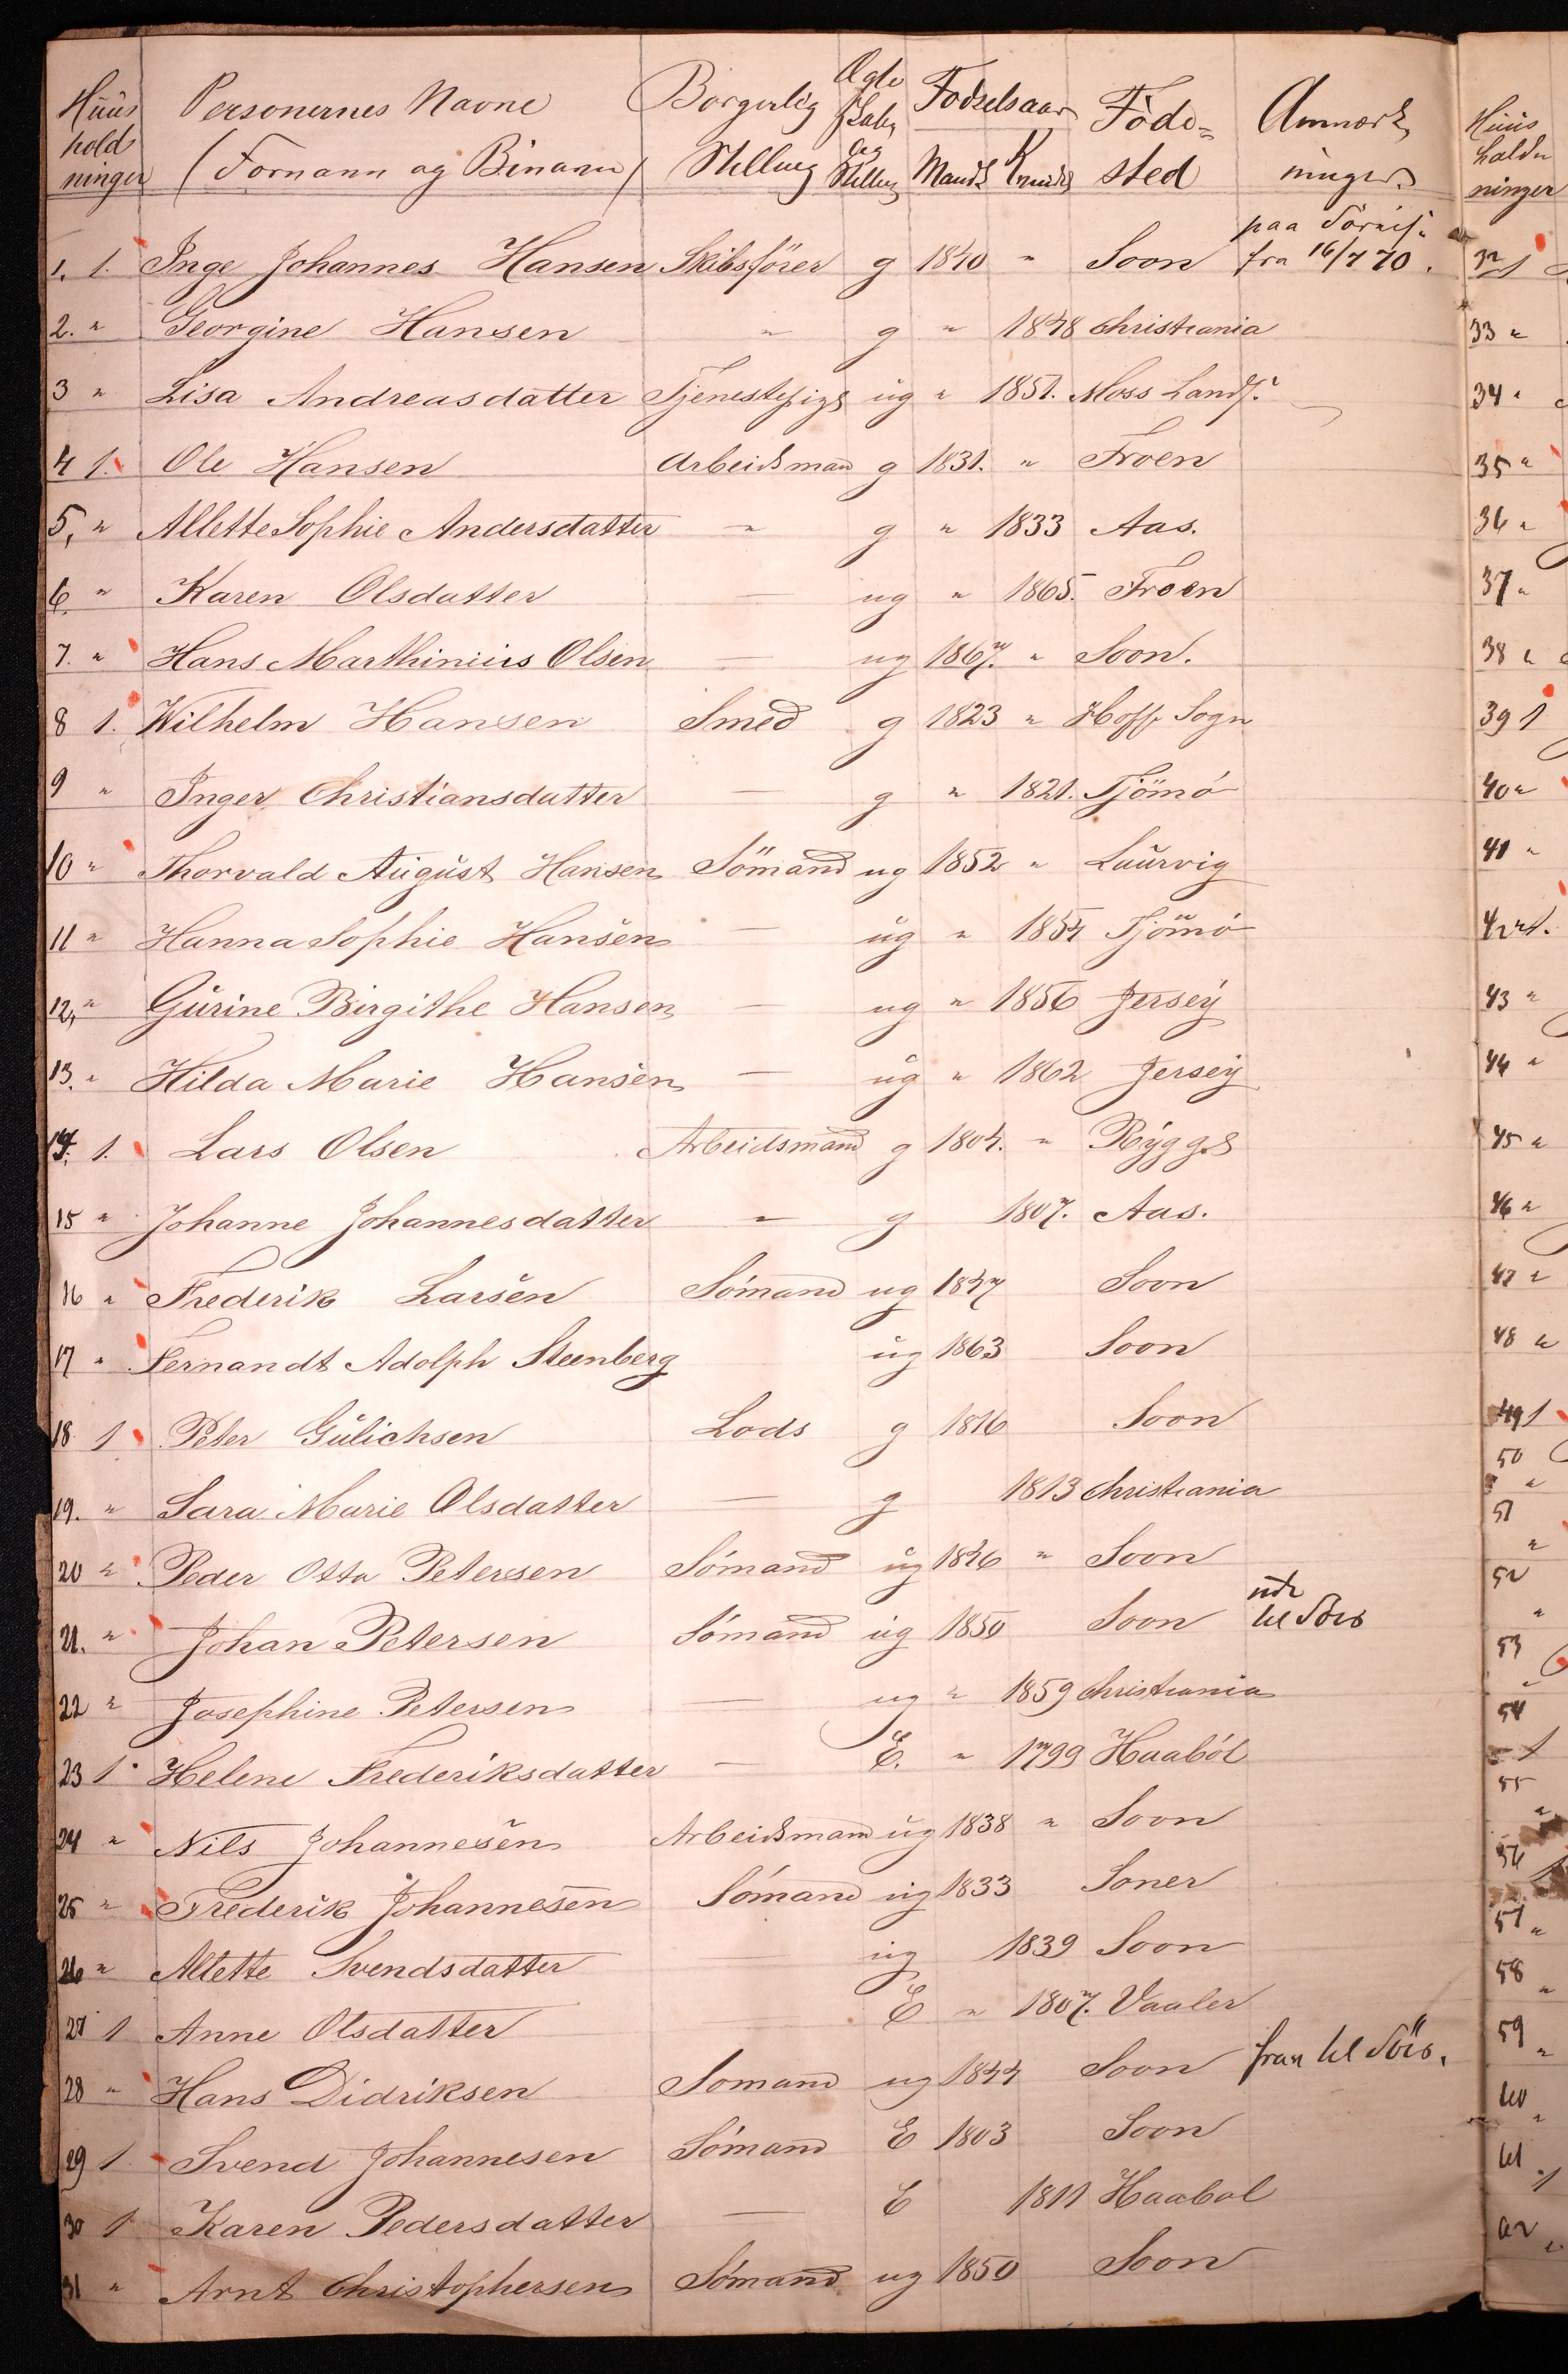 Huus Personernes Navne Borgerlig Ægte Fødselsaar Føde= Anmærk
hold (Fornavn og Binavn) Stilling Mandk. Kvindk. sted ninger
ninger
paa
1. 1. Inge Johannes Hansen Skibsfører g 1840 " Soon fra 16/7 70.
2. " Georgine Hansen " g " 1848 Christiania
3 " Lisa Andreasdatter Tjenestepige ug " 1851. Moss Lands.
4 1. Ole Hansen Arbeidsmand g 1831. " Froen
5, " Allette Sophie Andersdatter " g " 1833 Aas.
6. " Karen Olsdatter — ug " 1865. Froen
7. " Hans Marthinius Olsen — ug 1867. " Soon.
8 1. Wilhelm Hansen Smed g 1823 " Hoff Sogn
9 " Inger Christiansdatter — g " 1821. Tjömö
10 " Thorvald August Hansen Sömand ug 1852 " Laurvig
11 " Hanna Sophie Hansen — ug " 1854 Tjömö
12, " Gurine Birgithe Hansen — ug " 1856 Jersey
13. " Hilda Marie Hansen — ug " 1862 Jersey
14. 1. Lars Olsen Arbeidsmand g 1804. " Rygge
15 " Johanne Johannesdatter " g 1807. Aas.
16 " Frederik Larsen Sömand ug 1847 Soon
17 " Fernandt Adolph Steenberg ug 1863 Soon
18 1 Peter Gulichsen Lods g 1816 Soon
19. " Sara Marie Olsdatter — g 1813 Christiania
20 " Peder Otto Petersen Sömand ug 1846 " Soon
21. " Johan Petersen Sömand ug 1850 Soon til Söes
22 " Josephine Petersen — ug " 1859 Christiania
23 1 Helene Frederiksdatter — E. " 1799 Haaböl
24 " Nils Johannesen Arbeidsmand ug 1838 " Soon
25 " Frederik Johannesen Sömand ug 1833 Soner
26 " Alette Svendsdatter — ug 1839 Soon
27 1 Anne Olsdatter — E " 1807. Vaaler
28 " Hans Didriksen Somand ug 1844 Soon til Söes.
29 1 Svend Johannesen Sömand E 1803 Soon
30 1 Karen Pedersdatter — E 1811 Haabol
31 " Arnt Christophersen Sömand ug 1850 Soon
Huus
holdn
ninger
32 1
33 "
34 "
35 "
36 "
37 "
38 "
39 1
40 "
41 "
42 1.
43 "
44 "
45 "
46 "
47 "
48 "
49 1
50
"
51
"
52
"
53
"
54
1
55
"
56
57 "
58 "
59 "
60 "
61 1
62 "